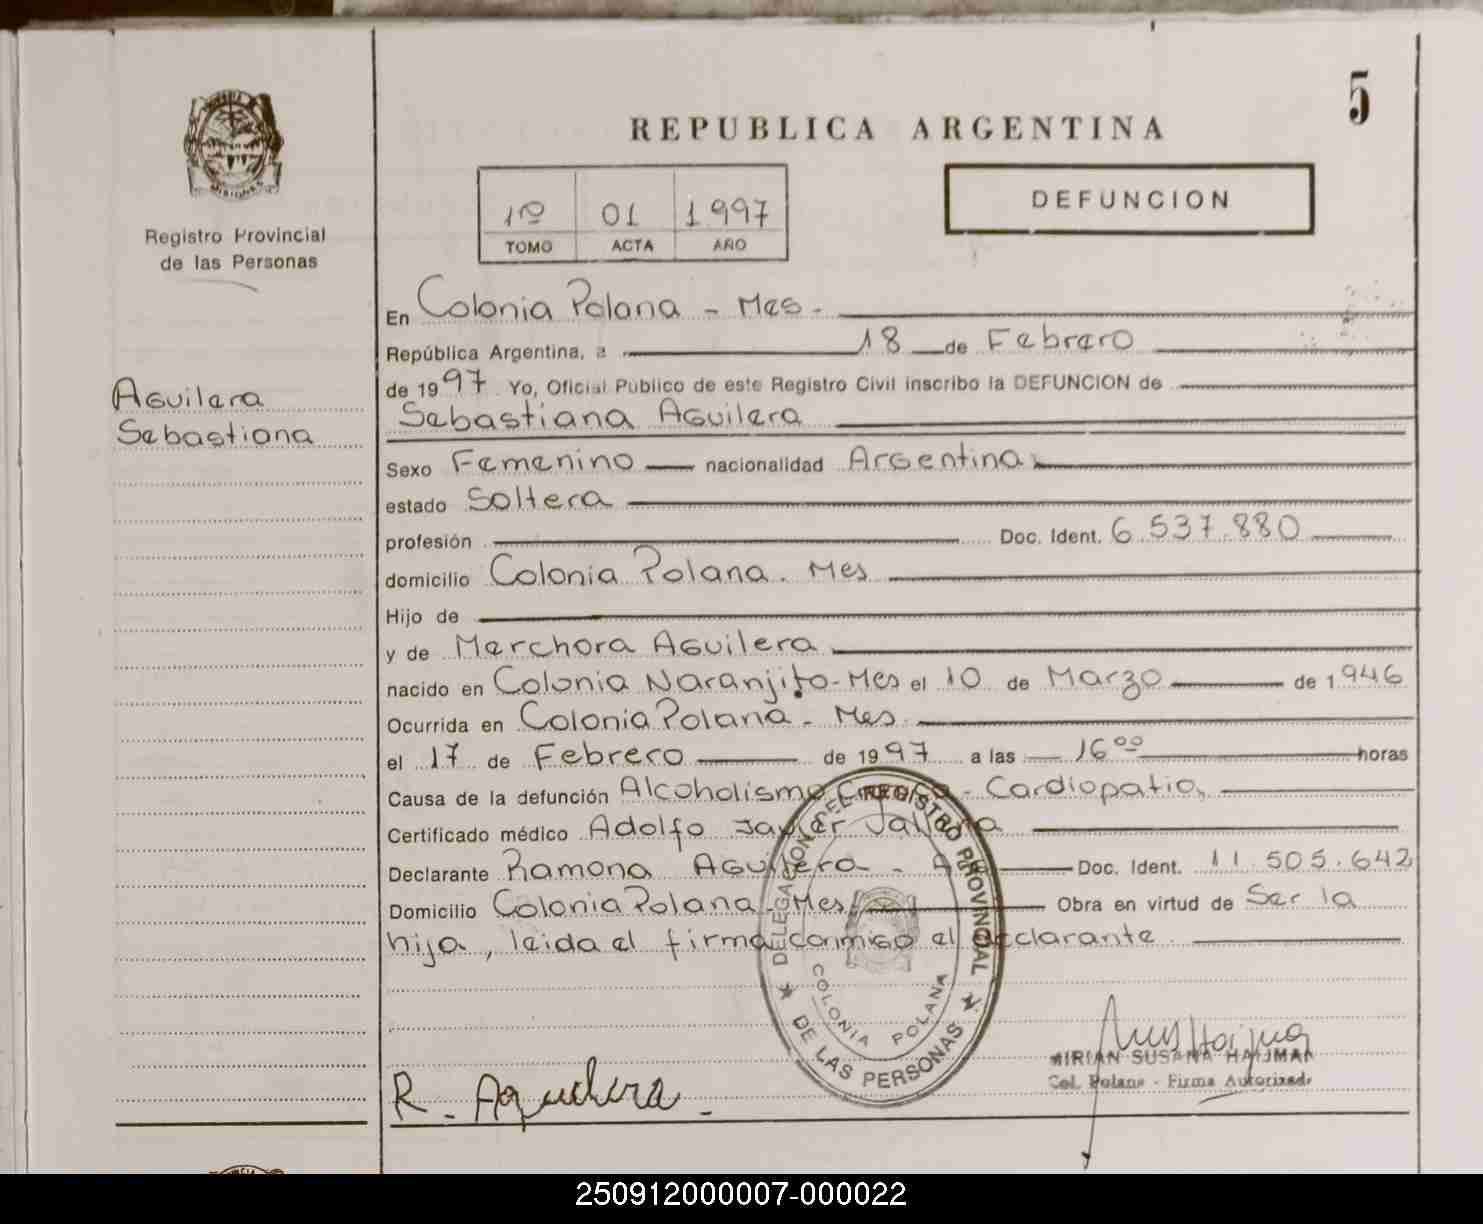 5
REPUBLICA ARGENTINA
MISIONES
Registro Provincial
de las Personas
1º 01 1997
TOMO ACTA AÑO
DEFUNCION
Aguilera
Sebastiana
En Colonia Polana - Mes -
República Argentina, a 18 de Febrero
de 1997 Yo, Oficial Público de este Registro Civil inscribo la DEFUNCION de
Sebastiana Aguilera
Sexo Femenino nacionalidad Argentina
estado Soltera
profesión Doc. Ident. 6.537.880
domicilio Colonia Polana. Mes
Hijo de
y de Merchora Aguilera
nacido en Colonia Naranjito-Mes el 10 de Marzo de 1946
Ocurrida en Colonia Polana - Mes
el 17 de Febrero de 1997 a las 16 00 horas
Causa de la defunción Alcoholismo - Cardiopatia,
Certificado médico Adolfo Javier
Declarante Ramona Aguilera - Doc. Ident. 11.505.642
Domicilio Colonia Polana - Mes Obra en virtud de Ser la
hija, leida el firma conmigo el declarante
DELEGACION DEL REGISTRO PROVINCIAL
DE LAS PERSONAS
COLONIA POLANA
R. Aguilera
MIRIAN SUSANA
Col. Polana - Firma Autorizada
250912000007-000022